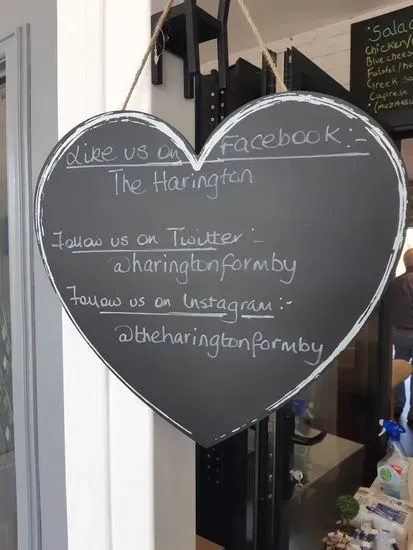 Like us on Facebook:-
The Harington
Follow us on Twitter:-
@haringtonformby
Follow us on Instagram:-
@theharingtonformby
Salad
Chicken/
Blue chees
Falafel/hu
Greek Sa
Caprese
(mozza